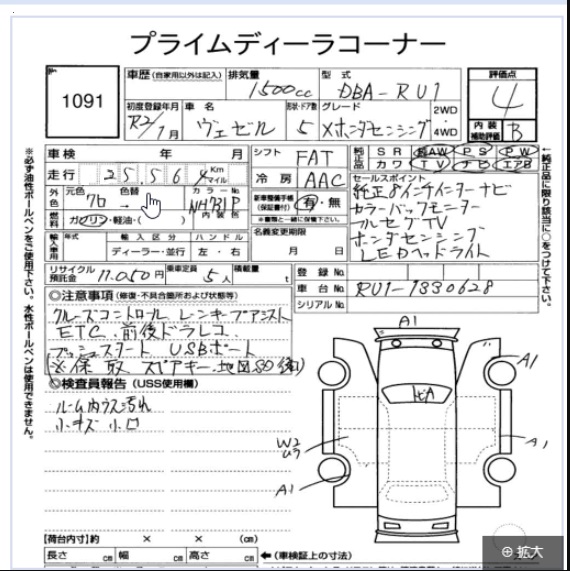 プライムディーラコーナー
1091
車歴 (自家用以外は記入)
排気量
1500cc
型式
DBA-RU1
評価点
4
初度登録年月
R2/1月
車名
ヴェゼル
形状・ドア数
5
グレード
Xホンダセンシング
2WD
4WD
内装
補助評価
B
車検 年 月
走行 25,564 Km マイル
外色
元色
クロ
色替
→
カラーNo.
NH731P
内装色
燃料
ガソリン・軽油・( )
シフト
FAT
冷房
AAC
新車整備手帳
(保証書付)
有・無
※書類と一緒に保管下さい。
名義変更期限
月 日
純正品
SR 純AW PS PW
カワ TV ナビ エアB
セールスポイント
純正8インチインターナビ
カラーバックモニター
フルセグTV
ホンダセンシング
LEDヘッドライト
輸入車用
年式
輸入区分
ディーラー・並行
ハンドル
左・右
リサイクル預託金
11,050円
乗車定員
5人
積載量
t
登録No.
車台No.
RU1-1330628
シリアルNo.
◎注意事項 (修復・不具合箇所および状態等)
クルーズコントロール レーンキープアシスト
ETC 前後ドラレコ
プッシュスタート USBポート
※保 取 スペアキー 地図SD
◎検査員報告 (USS使用欄)
ルーム内ウス汚れ
小キズ 小凹
A1
A1
A1
A1
W2
U2
ヒA
【荷台内寸】約 × × (cm)
長さ cm 幅 cm 高さ cm
←(車検証上の寸法)
※必ず油性ボールペンをご使用下さい。水性ボールペンは使用できません。
←純正品に限り該当に○をつけて下さい。
拡大